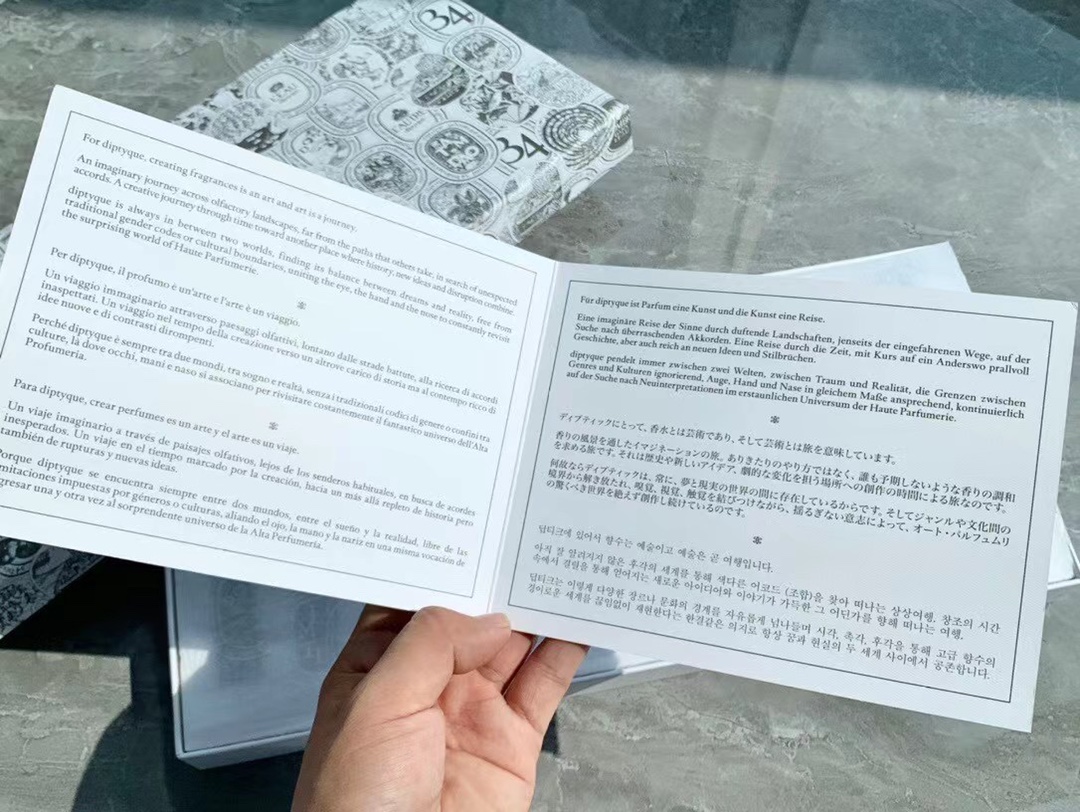 34
34
For diptyque, creating fragrances is an art and art is a journey.
An imaginary journey across olfactory landscapes, far from the paths that others take; in search of unexpected
accords. A creative journey through time toward another place where history, new ideas and disruption combine.
diptyque is always in between two worlds, finding its balance between dreams and reality, free from
traditional gender codes or cultural boundaries, uniting the eye, the hand and the nose to constantly revisit
the surprising world of Haute Parfumerie.
Per diptyque, il profumo è un'arte e l'arte è un viaggio.
Un viaggio immaginario attraverso paesaggi olfattivi, lontano dalle strade battute, alla ricerca di accordi
inaspettati. Un viaggio nel tempo della creazione verso un altrove carico di storia ma al contempo ricco di
idee nuove e di contrasti dirompenti.
Perché diptyque è sempre tra due mondi, tra sogno e realtà, senza i tradizionali codici di genere o confini tra
culture, là dove occhi, mani e naso si associano per rivisitare costantemente il fantastico universo dell'Alta
Profumeria.
Para diptyque, crear perfumes es un arte y el arte es un viaje.
Un viaje imaginario a través de paisajes olfativos, lejos de los senderos habituales, en busca de acordes
inesperados. Un viaje en el tiempo marcado por la creación, hacia un más allá repleto de historia pero
también de rupturas y nuevas ideas.
Porque diptyque se encuentra siempre entre dos mundos, entre el sueño y la realidad, libre de las
mitaciones impuestas por géneros o culturas, aliando el ojo, la mano y la nariz en una misma vocación de
gresar una y otra vez al sorprendente universo de la Alta Perfumería.
Für diptyque ist Parfum eine Kunst und die Kunst eine Reise.
Eine imaginäre Reise der Sinne durch duftende Landschaften, jenseits der eingefahrenen Wege, auf der
Suche nach überraschenden Akkorden. Eine Reise durch die Zeit, mit Kurs auf ein Anderswo prallvoll
Geschichte, aber auch reich an neuen Ideen und Stilbrüchen.
diptyque pendelt immer zwischen zwei Welten, zwischen Traum und Realität, die Grenzen zwischen
Genres und Kulturen ignorierend, Auge, Hand und Nase in gleichem Maße ansprechend, kontinuierlich
auf der Suche nach Neuinterpretationen im erstaunlichen Universum der Haute Parfumerie.
ディプティックにとって、香水とは芸術であり、そして芸術とは旅を意味しています。
香りの風景を通したイマジネーションの旅。ありきたりのやり方ではなく、誰も予期しないような香りの調和
を求める旅です。それは歴史や新しいアイデア、劇的な変化を担う場所への創作の時間による旅なのです。
何故ならディプティックは、常に、夢と現実の世界の間に存在しているからです。そしてジャンルや文化間の
境界から解き放たれ、嗅覚、視覚、触覚を結びつけながら、揺るぎない意志によって、オート・パルフュムリ
の驚くべき世界を絶えず創作し続けているのです。
딥티크에 있어서 향수는 예술이고 예술은 곧 여행입니다.
아직 잘 알려지지 않은 후각의 세계를 통해 색다른 어코드 (조합)을 찾아 떠나는 상상여행, 창조의 시간
속에서 결렬을 통해 얻어지는 새로운 아이디어와 이야기가 가득한 그 어딘가를 향해 떠나는 여행.
딥티크는 이렇게 다양한 장르나 문화의 경계를 자유롭게 넘나들며 시각, 촉각, 후각을 통해 고급 향수의
경이로운 세계를 끊임없이 재현한다는 한결같은 의지로 항상 꿈과 현실의 두 세계 사이에서 공존합니다.